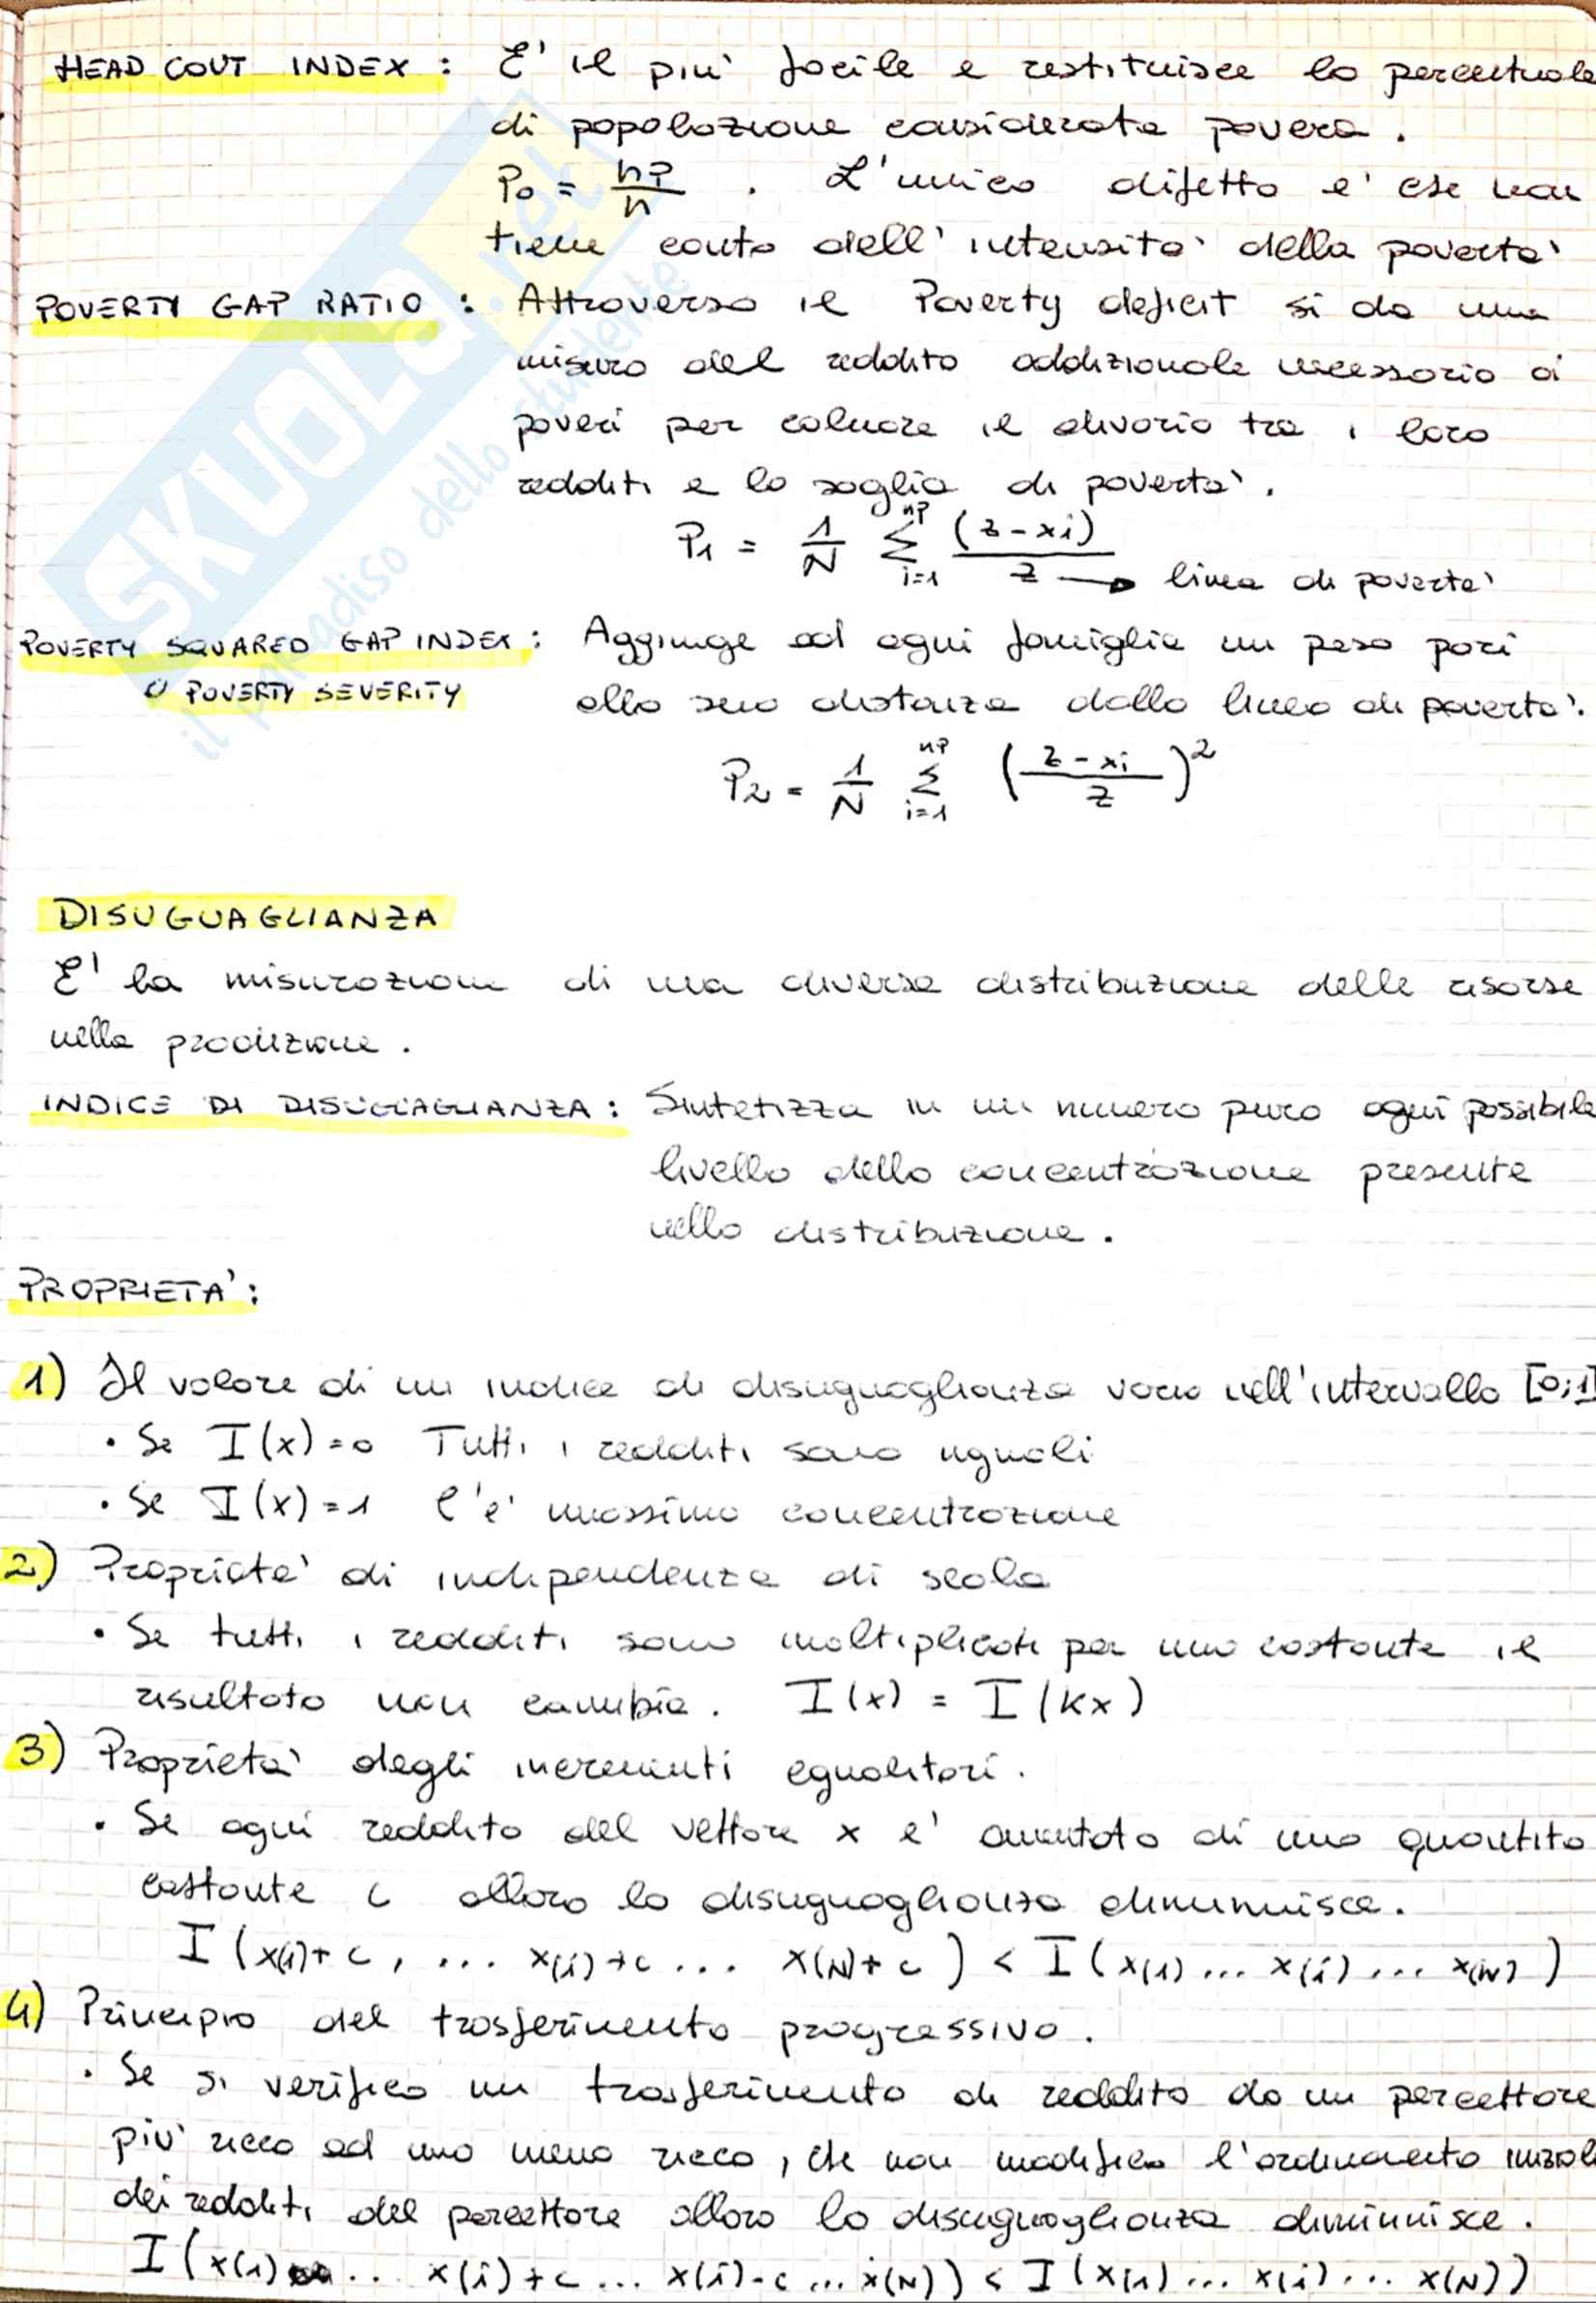 HEAD COUT INDEX : E' il piu' facile e restituisce la percentuale
di popolazione considerata povera .
P0 = nP/n . L'unico difetto e' che non
tiene conto dell' intensita' della poverta'
POVERTY GAP RATIO : Attraverso il Poverty deficit si da una
misura del reddito addizionale necessario ai
poveri per colmare il divario tra i loro
redditi e la soglia di poverta' .
P1 = 1/N Σ i=1 nP (z-xi)/z → linea di poverta'
POVERTY SQUARED GAP INDEX : Aggiunge ad ogni famiglia un peso pari
O POVERTY SEVERITY alla sua distanza dalla linea di poverta' .
P2 = 1/N Σ i=1 nP (z-xi/z)²
DISUGUAGLIANZA
E' la misurazione di una diversa distribuzione delle risorse
nella produzione .
INDICE DI DISUGUAGLIANZA : Sintetizza in un numero puro ogni possibile
livello della concentrazione presente
nella distribuzione .
PROPRIETA' :
1) Il valore di un indice di disuguaglianza varia nell'intervallo [0;1]
• Se I(x)=0 Tutti i redditi sono uguali
• Se I(x)=1 C'e' massima concentrazione
2) Proprieta' di indipendenza di scala
• Se tutti i redditi sono moltiplicati per una costante il
risultato non cambia . I(x) = I(kx)
3) Proprieta' degli incrementi egualitari .
• Se ogni reddito del vettore x e' aumentato di una quantita
costante c allora la disuguaglianza diminuisce .
I (x(1)+c, ... x(i)+c ... x(N)+c ) < I (x(1) ... x(i) ... x(N) )
4) Principio del trasferimento progressivo .
• Se si verifica un trasferimento di reddito da un percettore
piu' ricco ad uno meno ricco , che non modifica l'ordinamento inizial
dei redditi del percettore allora la disuguaglianza diminuisce .
I (x(1) ... x(i)+c ... x(i)-c ... x(N)) < I (x(1) ... x(i) ... x(N))
SKUOLA.net
il paradiso dello studente